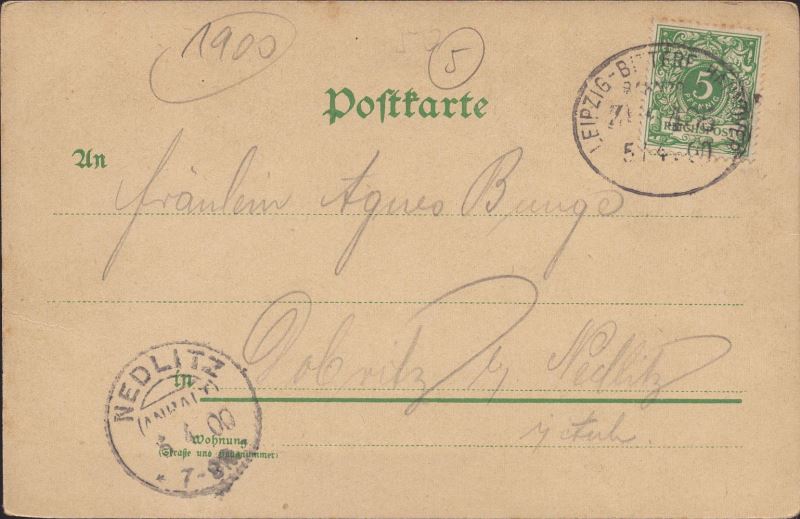 1900
5
Postkarte
LEIPZIG-BITTERF
5
PFENNIG
REICHSPOST
5 4 00
An
Fräulein Agnes Bunge
in Dobritz b/ Nedlitz
i/ Anh.
NEDLITZ
(ANHALT)
5 4 00
7-8N
Wohnung
(Straße und Hausnummer)